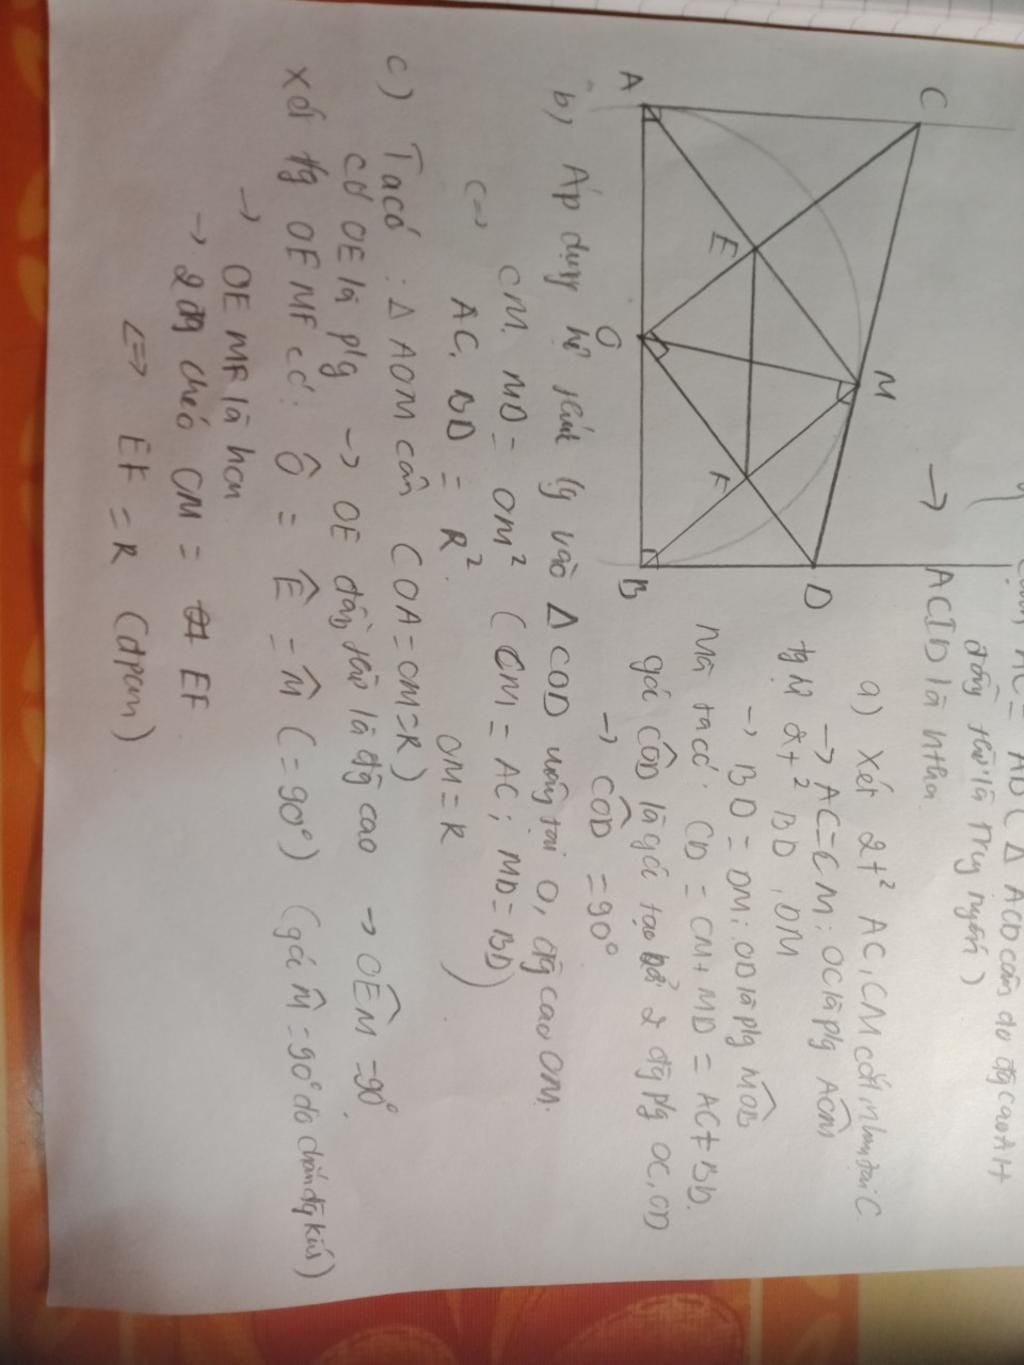 AC = ABC Δ ACD cân do đg cao AH
đồng thời là trung tuyến)
→ ACID là hthoi
C
A
E
M
O
F
B
D
a) Xét 2t² AC, CM cắt nhau tại C
→ AC = CM; OC là p/g ACM
tg tự 2t² BD, DM
→ BD = DM; OD là p/g MOB
Mà ta có: CD = CM + MD = AC + BD.
góc COD là góc tạo bởi 2 đg p/g OC, OD
→ COD = 90°
b) Áp dụng hệ thức lg vào Δ COD vuông tại O, đg cao OM.
CM. MD = OM² (CM = AC; MD = BD)
<=> AC. BD = R². OM = R )
c) Ta có: Δ AOM cân (OA = OM = R)
có OE là p/g → OE đồng thời là đg cao → OEM = 90°.
Xét tg OEMF có: Ô = Ê = M (= 90°) (góc M = 90° do chắn đg kính)
→ OEMF là hcn
→ 2 đg chéo OM = EF
<=> EF = R (đpcm)